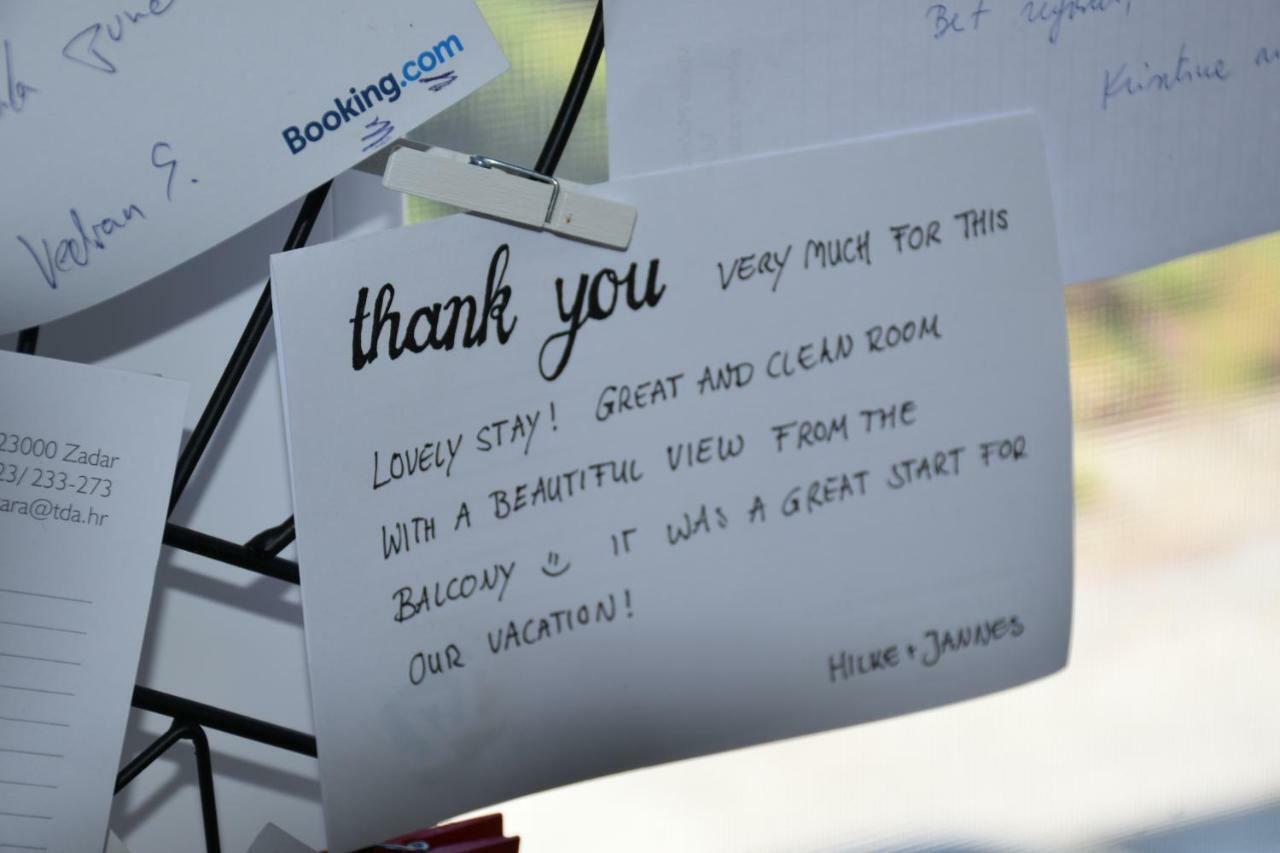 Booking.com
Vedran G.
Kristine
thank you VERY MUCH FOR THIS
LOVELY STAY! GREAT AND CLEAN ROOM
WITH A BEAUTIFUL VIEW FROM THE
BALCONY IT WAS A GREAT START FOR
OUR VACATION!
HILKE + JANNES
23000 Zadar
23/ 233-273
ara@tda.hr